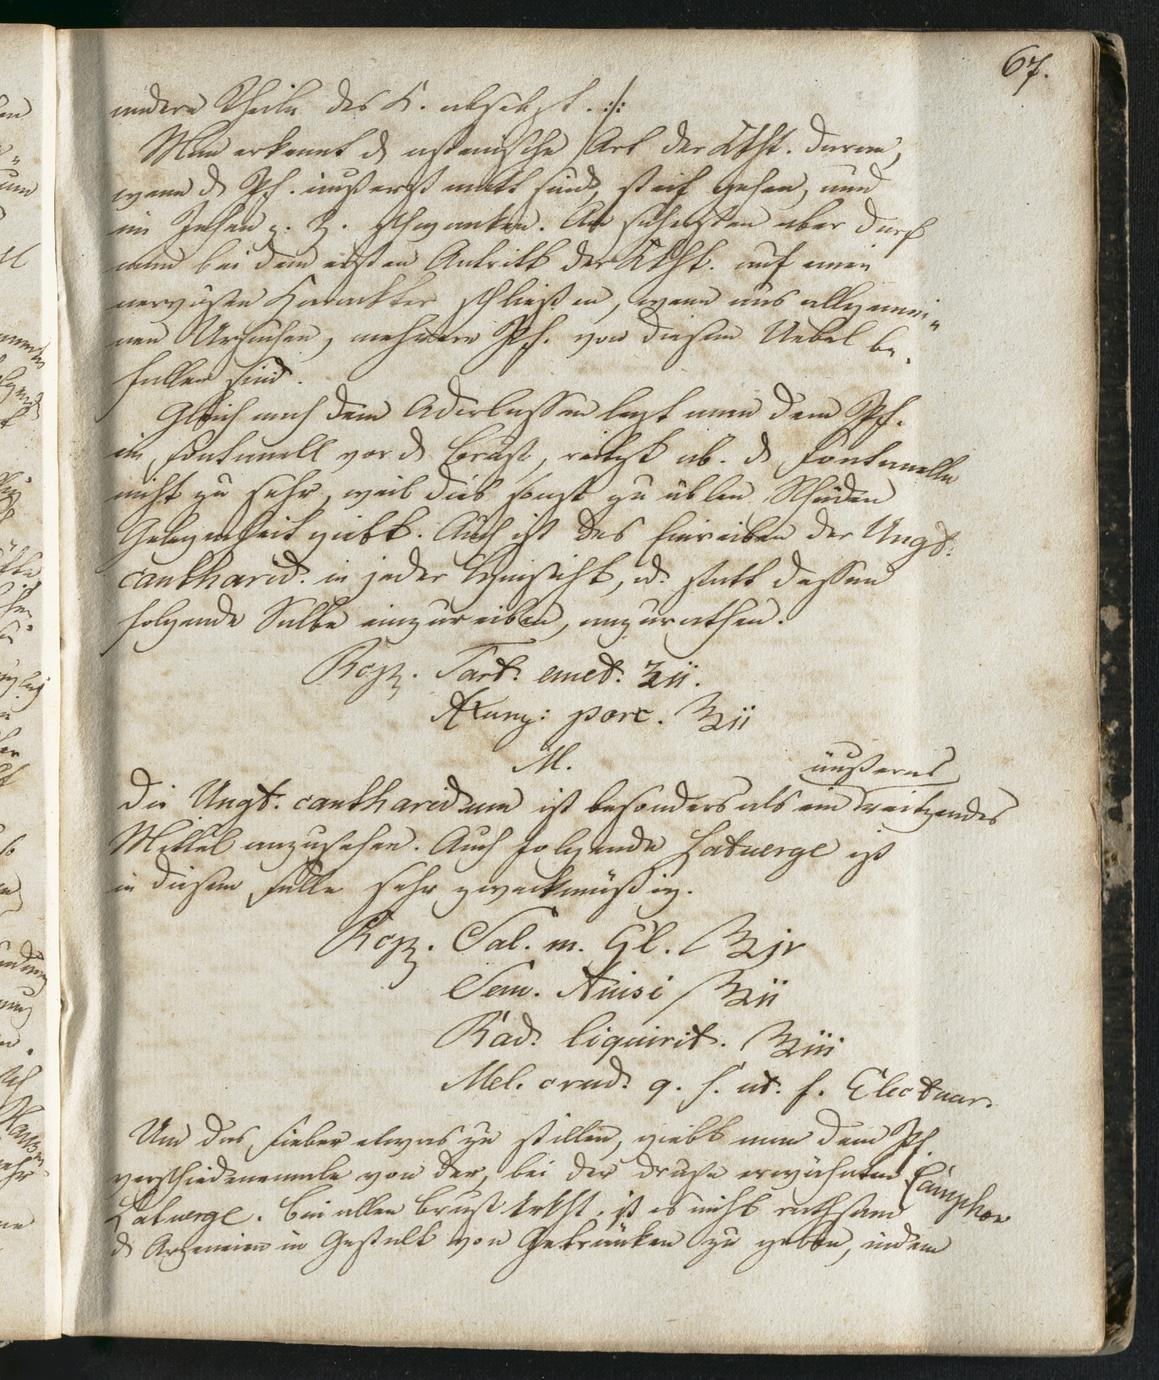 67.
andere Theile des K. absetzt. ://:
Man erkennt d astenische Art der Krkht. daran,
wenn d Pf. äußerst matt sind, steif gehen, und
im Gehen z. B. schwanken. Am sichersten aber darf
man bei dem ersten Antritt der Krkht. auf einen
nervösen Karakter schließen, wenn aus allgemei„
nen Ursachen, mehrere Pf. von diesem Uebel be„
fallen sind.
Gleich nach dem Aderlassen legt man dem Pf.
ein Fontanell vor d Brust, reitzt ab. d Fontanelle
nicht zu sehr, weil dies sonst zu üblen Schäden
Gelegenheit giebt. Auch ist das Einreiben der Ungt.
cantharid. in jeder Hinsicht, od. statt dessen
folgende Salbe einzureiben, anzurathen.
Rcpz. Tart. emet. ʒii.
Axung: porc. ℥ii
M.
äußerns
Die Ungt. cantharidum ist besonders als ein reitzendes
Mittel anzusehen. Auch folgende Latwerge ist
in diesem Falle sehr zweckmäßig.
Rcpz. Sal. m. Gl. ℥jv
Sem. Anisi ℥ii
Rad. liquirit. ℥iii
Mel. crud. q. s. ut. f. Electuar.
Um das Fieber etwas zu stillen, giebt man dem Pf.
verschiedenemale von der, bei der Druse erwähnten Camphor
Latwerge. Bei allen Brust Krkht. ist es nicht rathsam
d Arzeneien in Gestalt von Getränken zu geben, indem